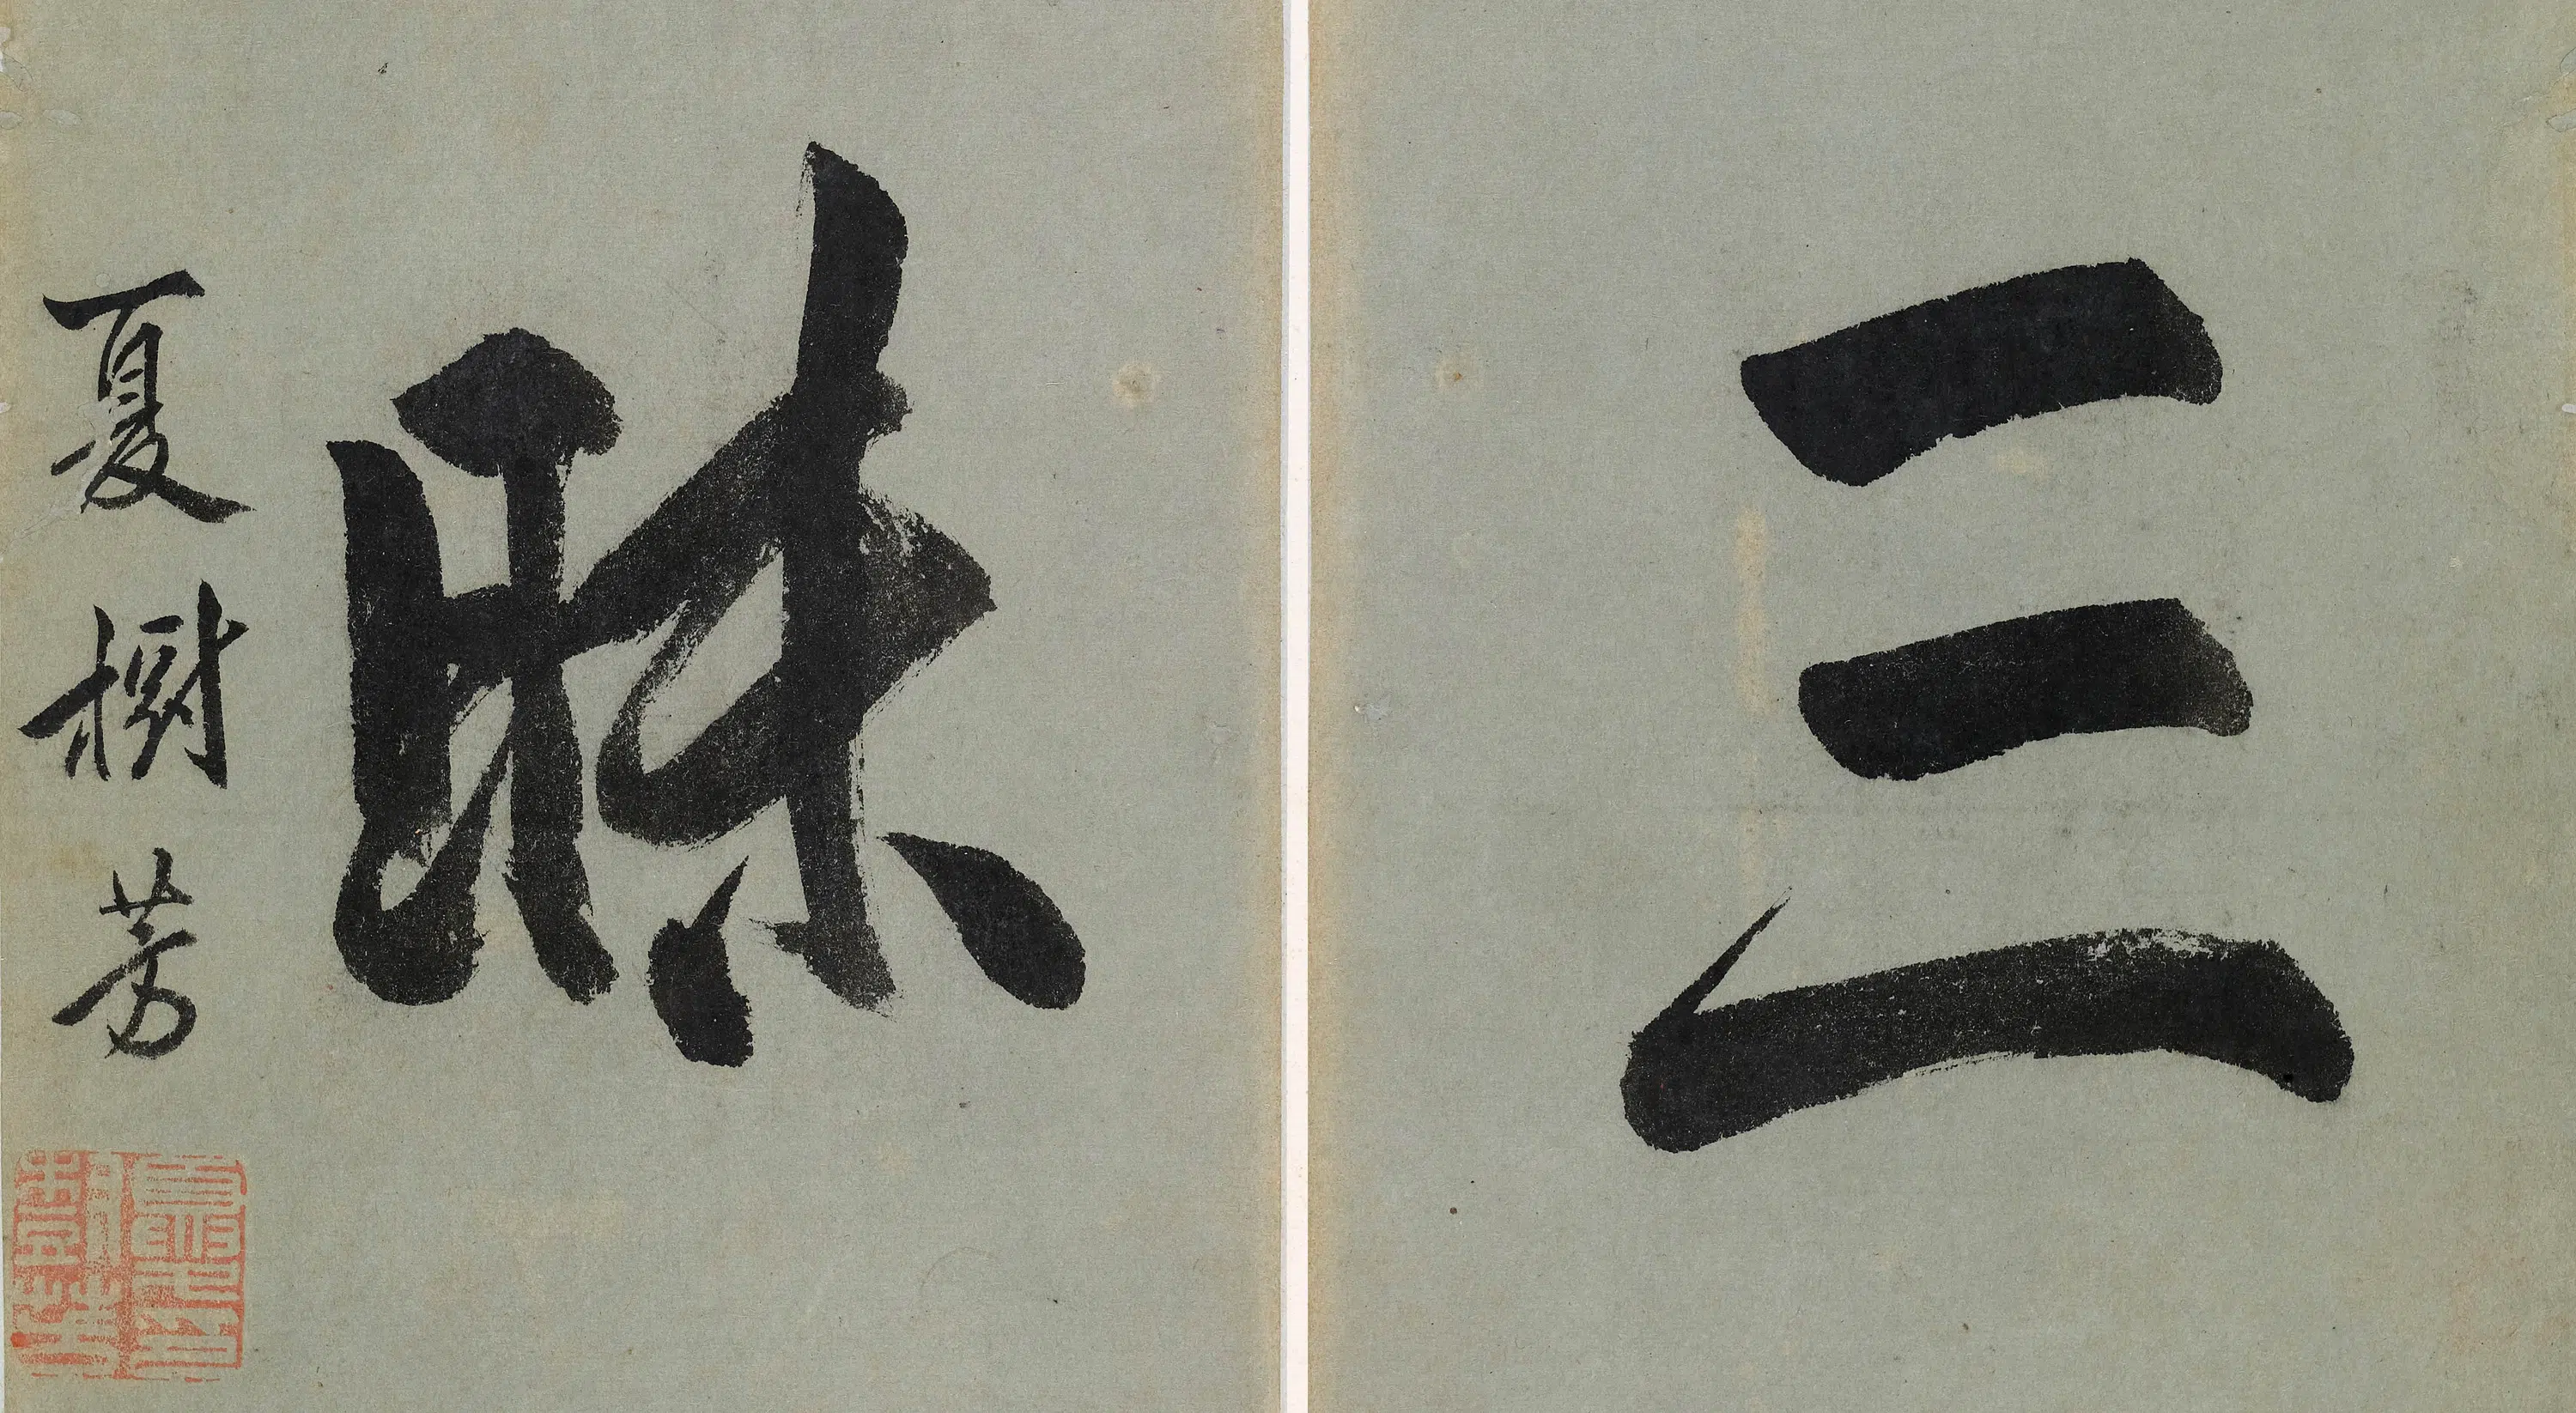 三昧
夏樹芳